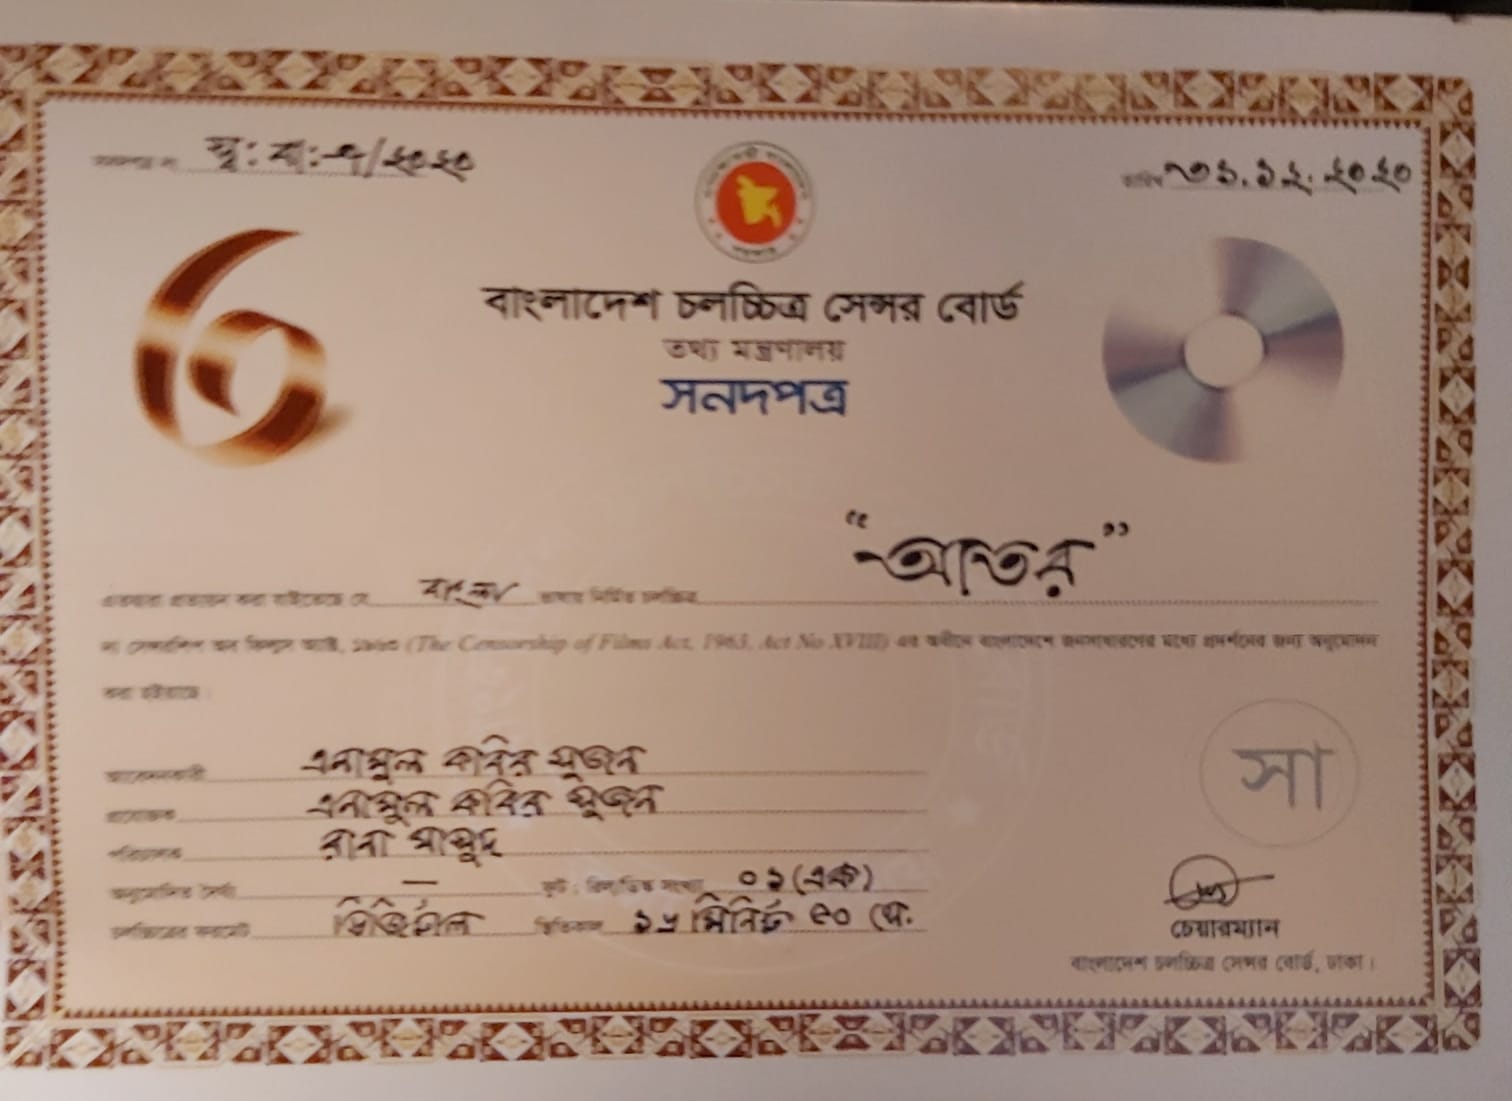 স্ব: বা: ৭/২০২০
তারিখ ৩১.১২.২০২০
বাংলাদেশ চলচ্চিত্র সেন্সর বোর্ড
তথ্য মন্ত্রণালয়
সনদপত্র
"আতর"
এতদ্বারা প্রত্যয়ন করা যাইতেছে যে বাংলা ভাষায় নির্মিত চলচ্চিত্র
দ্য সেন্সরশিপ অব ফিল্মস আই, ১৯৬৩ (The Censorship of Films Act, 1963, Act No XVIII) এর অধীনে বাংলাদেশে জনসাধারণের মধ্যে প্রদর্শনের জন্য অনুমোদন
করা হইয়াছে।
আবেদনকারী এনামুল কবির সুজন
প্রযোজক এনামুল কবির সুজন
পরিচালক রানা মাসুদ
অনুমোদিত দৈর্ঘ্য — ফুট : রিল/ডিস্ক সংখ্যা ০১ (এক)
চলচ্চিত্রের ফরমেট ডিজিটাল স্থিতিকাল মিনিট ৫০ সে.
সা
চেয়ারম্যান
বাংলাদেশ চলচ্চিত্র সেন্সর বোর্ড, ঢাকা।